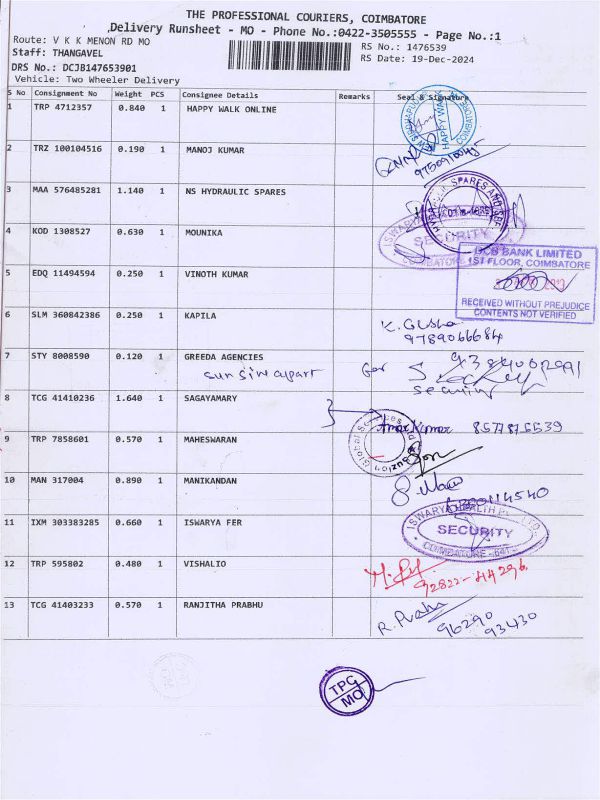 THE PROFESSIONAL COURIERS, COIMBATORE
Delivery Runsheet - MO - Phone No.:0422-3505555 - Page No.:1
Route: V K K MENON RD MO
RS No.: 1476539
Staff: THANGAVEL
RS Date: 19-Dec-2024
DRS No.: DCJB147653901
Vehicle: Two Wheeler Delivery
S No Consignment No Weight PCS Consignee Details Remarks Seal & Signature
1 TRP 4712357 0.840 1 HAPPY WALK ONLINE
HAPPY WALK
2 TRZ 100104516 0.190 1 MANOJ KUMAR
3 MAA 576485281 1.140 1 NS HYDRAULIC SPARES
4 KOD 1308527 0.630 1 MOUNIKA
SECURITY
DCB BANK LIMITED
1ST FLOOR, COIMBATORE
RECEIVED WITHOUT PREJUDICE
CONTENTS NOT VERIFIED
5 EDQ 11494594 0.250 1 VINOTH KUMAR
6 SLM 360842386 0.250 1 KAPILA
9789066684
7 STY 8008590 0.120 1 GREEDA AGENCIES
for
8 TCG 41410236 1.640 1 SAGAYAMARY
9 TRP 7858601 0.570 1 MAHESWARAN
10 MAN 317004 0.890 1 MANIKANDAN
11 IXM 303383285 0.660 1 ISWARYA FER
SECURITY
12 TRP 595802 0.480 1 VISHALIO
92822-44296
13 TCG 41403233 0.570 1 RANJITHA PRABHU
R. Prabhu
96290
93430
TPC
MO